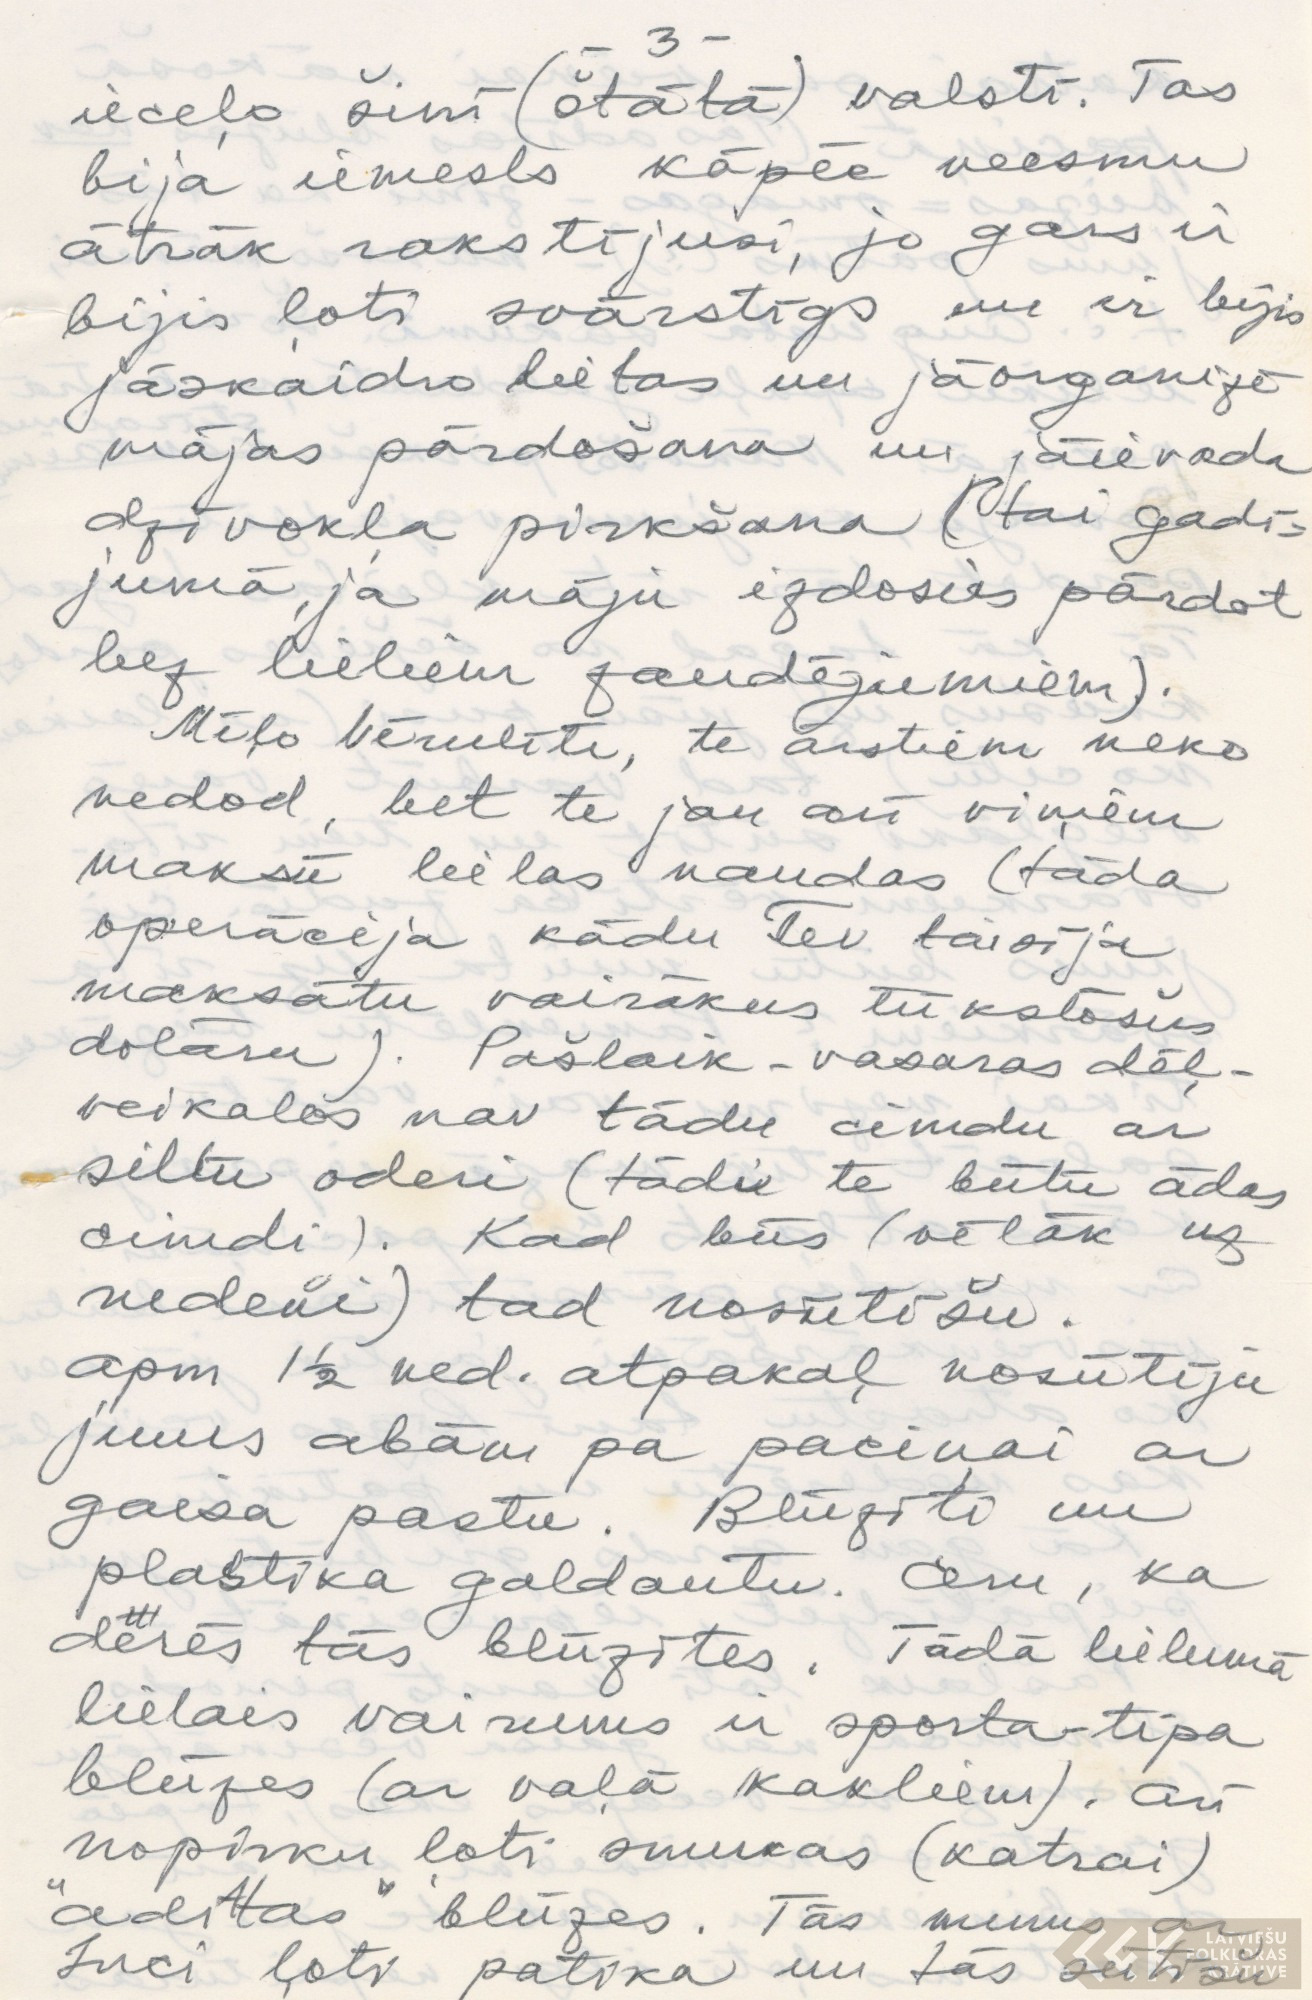 - 3 -
ieceļo šinī (štātā) valstī. Tas
bija iemesls kāpēc neesmu
ātrāk rakstījusi, jo gars ir
bijis ļoti svārstīgs un ir bijis
jāskaidro lietas un jāorganizē
mājas pārdošana un jāievada
dzīvokļa pirkšana (tai gadī=
jumā, ja māju izdosies pārdot
bez lieliem zaudējumiem).
Mīļo Vērulīti, te ārstiem neko
nedod, bet te jau arī viņiem
maksā lielas naudas (tāda
operācija kādu Tev taisīja
maksātu vairākus tūkstošus
dolāru). Pašlaik - vasaras dēļ -
veikalos nav tādu cimdu ar
siltu oderi (tādi te būtu ādas
cimdi). Kad būs (vēlāk uz
rudeni) tad nosūtīšu.
apm 1½ ned. atpakaļ nosūtīju
jums abām pa paciņai ar
gaisa pastu. Blūzīti un
plastika galdautu. Ceru, ka
derēs tās blūzītes. Tādā lielumā
lielais vairums ir sporta-tipa
blūzes (ar vaļā kakliem). arī
nopirku ļoti smukas (katrai)
"adītas" blūzes. Tās mums ar
Inci ļoti patika un tās sūtīšu
LATVIEŠU
FOLKLORAS
KRĀTUVE